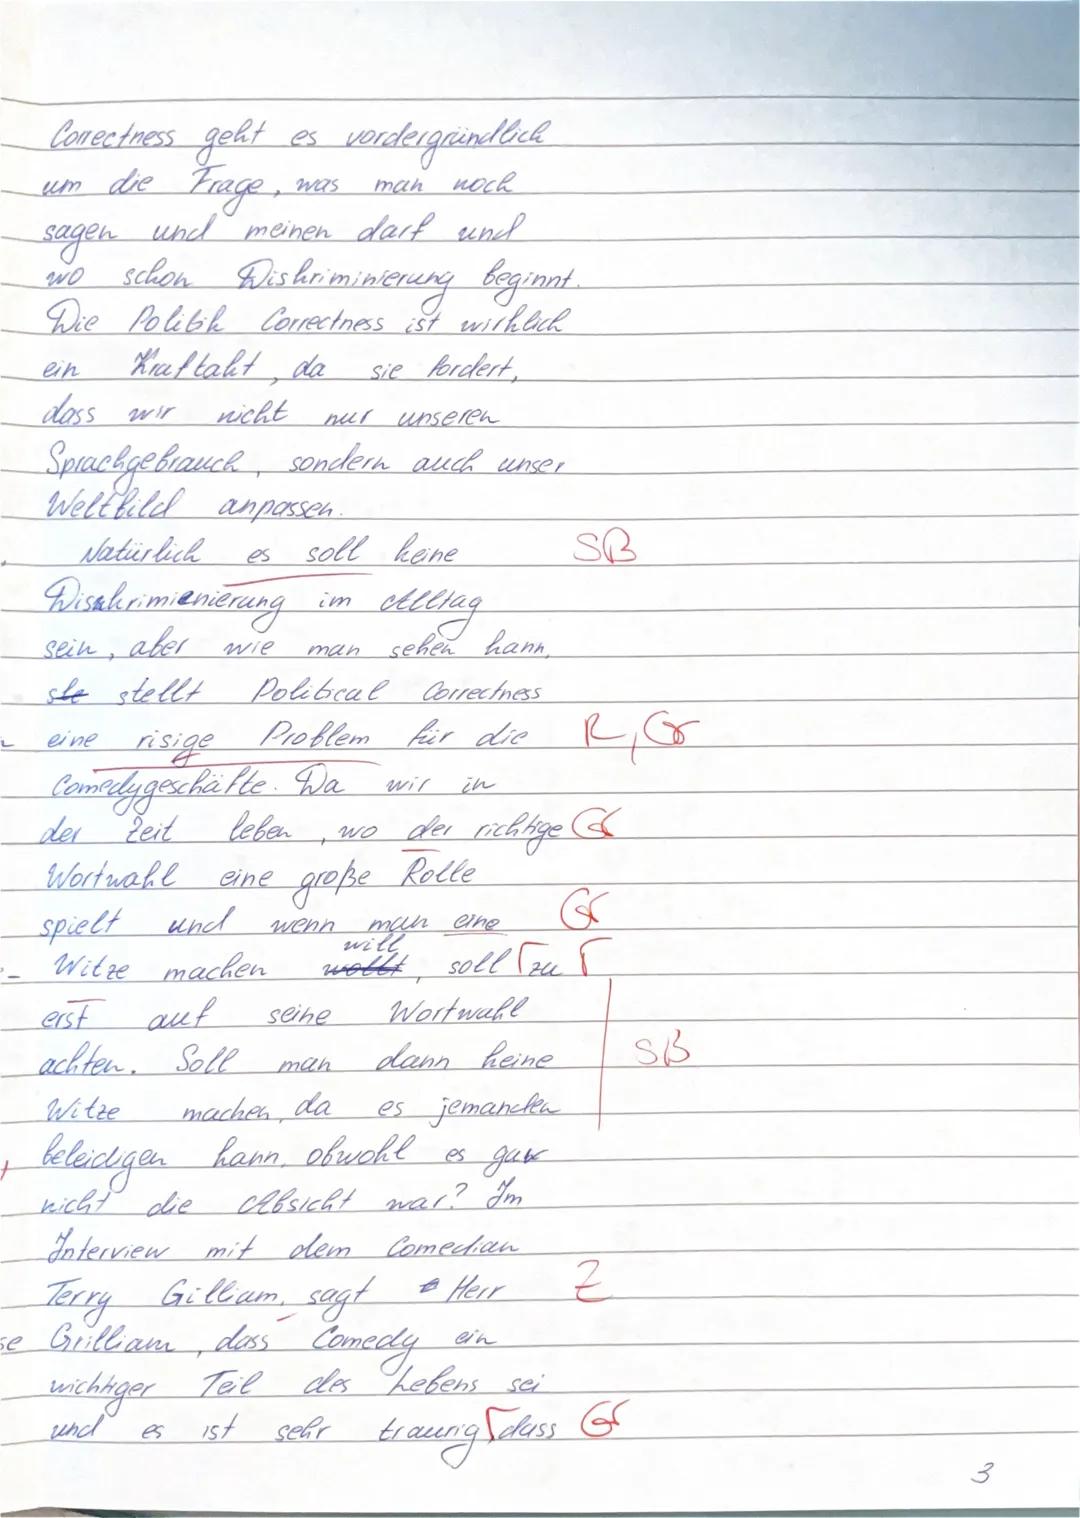 Correctness geht es vordergründlich
um die Frage, was man noch
sagen und meinen darf und
wo schon Diskriminierung beginnt.
Die Politik Correctness ist wirklich
ein Kraftakt, da sie fordert,
dass wir nicht nur unseren
Sprachgebrauch, sondern auch unser
Weltbild anpassen.
Natürlich es soll keine SB
Diskrimienierung im Alltag
sein, aber wie man sehen kann,
stellt Political Correctness
eine risige Problem für die R, Gr
Comedygeschäfte. Da wir in
der Zeit leben, wo der richtige Gr
Wortwahl eine große Rolle
spielt und wenn man eine Gr
will
Witze machen wollt, soll zu
erst auf seine Wortwahl
achten. Soll man dann keine SB
Witze machen, da es jemanden
beleidigen kann, obwohl es gar
nicht die Absicht war? Im
Interview mit dem Comedian
Terry Gilliam, sagt Herr Z
se Grilliam, dass Comedy ein
wichtiger Teil des Lebens sei
und es ist sehr traurig dass Gr
3